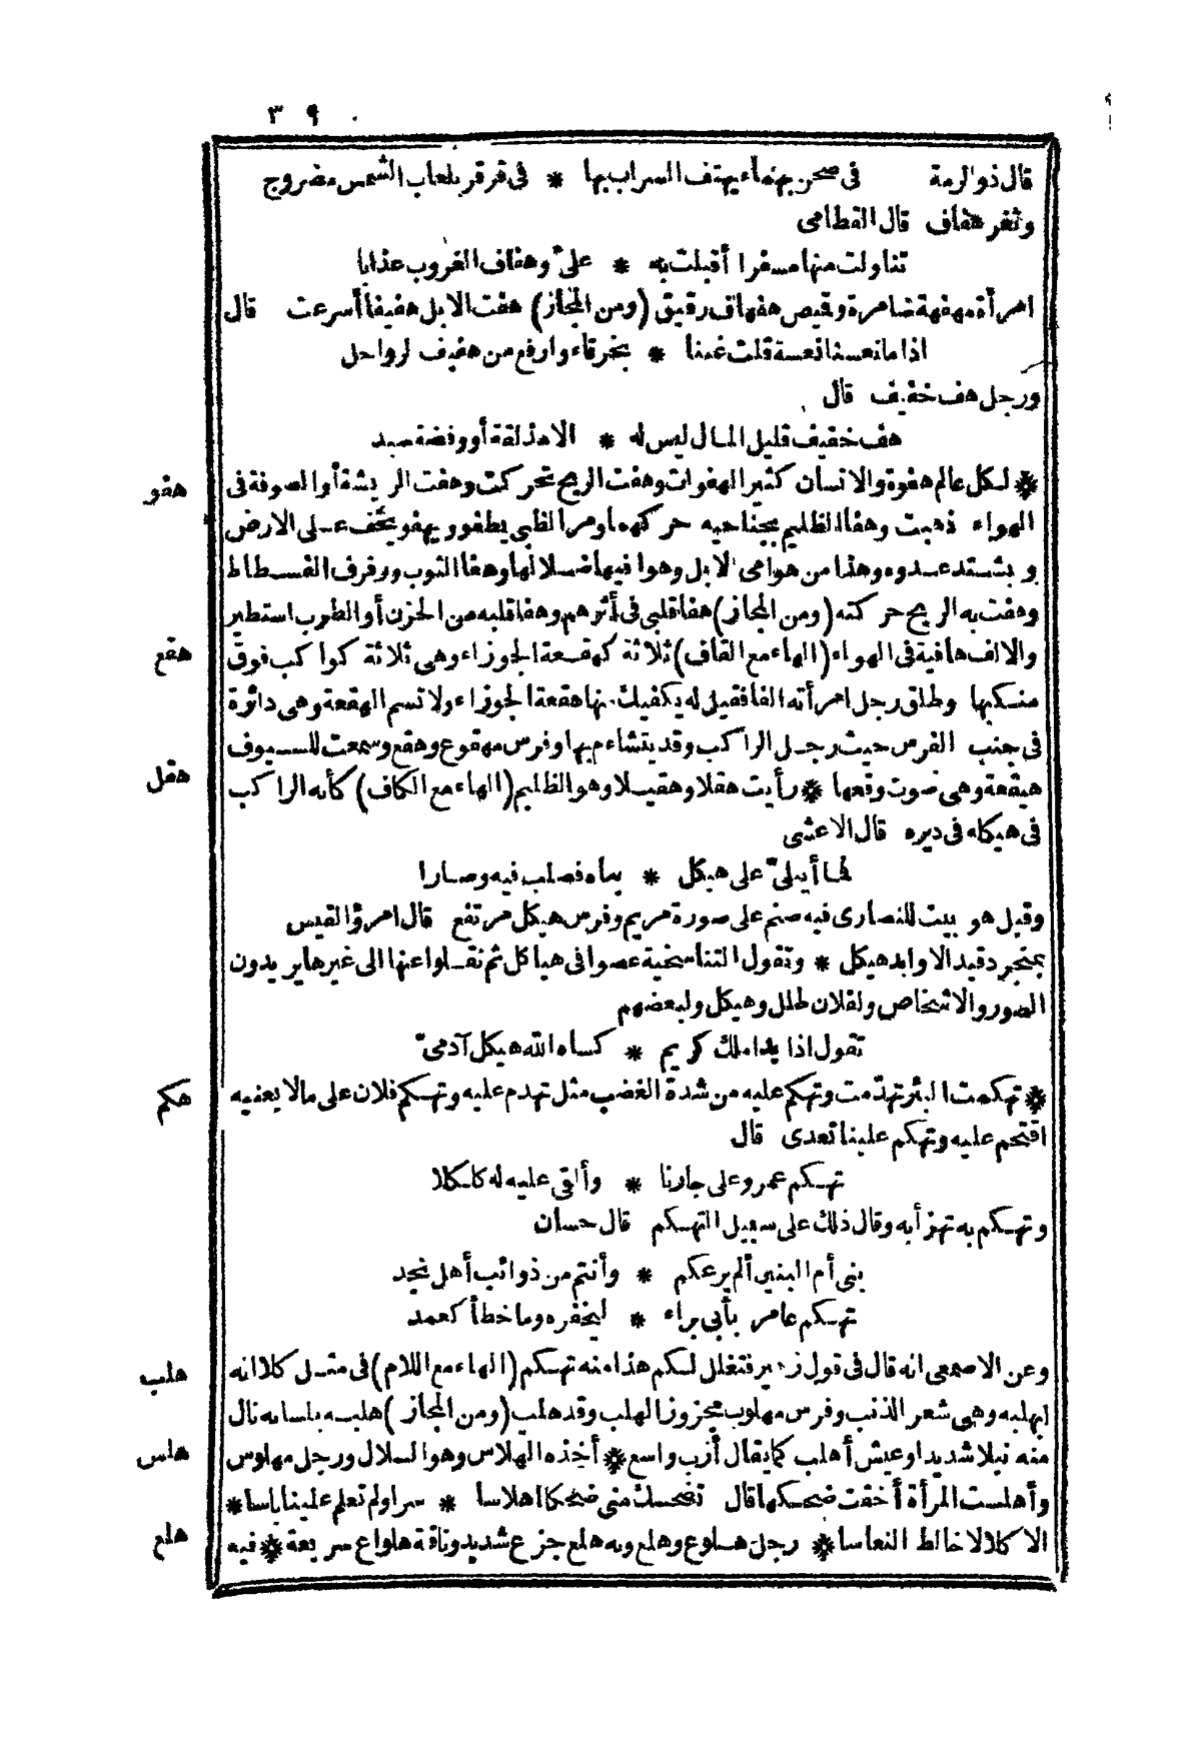 ٣٩٠
قال ذو الرمة في صحن يهماء يهتف السراب بها * في قرقر بلعاب الشمس مضروج
وثغر هفاف قال القطامى
تناولت منها مسفرا أقبلت به * علىّ وهفاف الغروب عذابا
امرأة مهفهفة ضامرة وقميص هفهاف رقيق (ومن المجاز) هفت الابل هفيفا أسرعت قال
اذا ما نعسنا نعسة قلت غننا * بخرقاء وارفع من هفيف الرواحل
ورجل هف خفيف قال
هف خفيف قليل المال ليس له * الا مذلقة أو وفضة سبد
هفو
* لكل عالم هفوة والانسان كثير الهفوات وهفت الريح تحركت وهفت الريشة أو الصوفة في
الهواء ذهبت وهفا الظليم بجناحيه حركهما ومر الظبي يطفو ويهفو يخف على الارض
ويشتد عدوه وهذا من هوامى الابل وهوافيها ضلالها وهفا الثوب ورفرف الفسطاط
وهفت به الريح حركته (ومن المجاز) هفا قلبي في أثرهم وهفا قلبه من الحزن أو الطرب استطير
هقع
والالف هافية في الهواء (الهاء مع القاف) ثلاثة كهقعة الجوزاء وهي ثلاثة كواكب فوق
منكبها وطلق رجل امرأته ألفا فقيل له يكفيك منها هقعة الجوزاء ولا تسم الهقعة وهي دائرة
في جنب الفرس حيث رجل الراكب وقد يتشاءم بها وفرس مهقوع وهقع وسمعت للسيوف
هقل
هيقعة وهي صوت وقعها * رأيت هقلا وهقيلا وهو الظليم (الهاء مع الكاف) كأنه الراكب
في هيكله في ديره قال الاعشى
فما أيبلىّ على هيكل * بناه فصلب فيه وصارا
وقيل هو بيت للنصارى فيه صنم على صورة مريم وفرس هيكل مرتفع قال امرؤ القيس
بمنجرد قيد الاوابد هيكل * وتقول التناسخية عصوا في هياكل ثم نقلوا عنها الى غيرها يريدون
الصور والاشخاص ولفلان طلل وهيكل ولبعضهم
تقول اذا بدا ملك كريم * كساه الله هيكل آدمىّ
هكم
* تهكمت البئر تهدّمت وتهكم عليه من شدة الغضب مثل تهدم عليه وتهكم فلان على مالا يعنيه
اقتحم عليه وتهكم علينا تعدى قال
تهكم عمرو على جارنا * وألقى عليه له كلكلا
وتهكم به تهزأ به وقال ذلك على سبيل التهكم قال حسان
بنى أم البنين ألم يرعكم * وأنتم من ذوائب أهل نجد
تهكم عامر بأبي براء * ليخفره وما خطأ كعمد
هلب
وعن الاصمعى انه قال في قول زهير فتغلل لكم هذا منه تهكم (الهاء مع اللام) في مثل كلا انه
ابهلبه وهي شعر الذنب وفرس مهلوب مجزوز الهلب وقد هلب (ومن المجاز) هلبه بلسانه نال
هلس
منه نيلا شديدا وعيش أهلب كما يقال أزب واسع * أخذه الهلاس وهو السلال ورجل مهلوس
وأهلست المرأة أخفت ضحكها قال تضحك منى ضحكا اهلاسا * سرا ولم تعلم علينا باسا *
هلع
الا كلالا خالط النعاسا * رجل هلوع وهلع وبه هلع جزع شديد وناقة هلواع سريعة * فيه